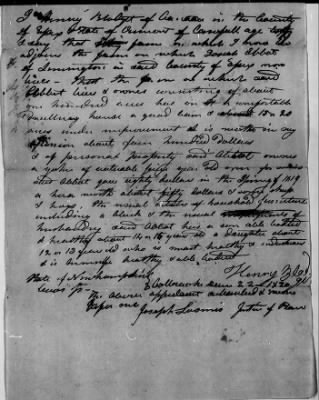 I Henry Blodget of Ca in the County
of Essex & State of Vermont of lawfull age
& say that farm on which I now
adjoins the farm on which Abbot
of Lemington in said County of Essex now
lives - that the farm on which said
Abbot lives & owns consisting of about
one hundred acres has on it a comfortable
Dwelling house a good barn & about 15 or 20
acres under improvement & is worth in my
opinion about four hundred Dollars
& of personal property said Abbot owns
a yoke of valuable four year old oxen
said Abbot gave eighty Dollars in the Spring of 1819
a horse worth about fifty Dollars & some sheep
& hogs, the usual of household furniture
including a clock & the usual of
husbandry said Abbot has a son able bodied
& healthy about 14 or 15 year old a Daughter about
12 or 13 year old who is most healthy &
& is himself healthy & able bodied
Henry Blodget
State of Newhampshire
Coos ss - Colbrook June 22 1820
the above appellant subscribed & swore
before me Joseph Loomis Justice of Peace